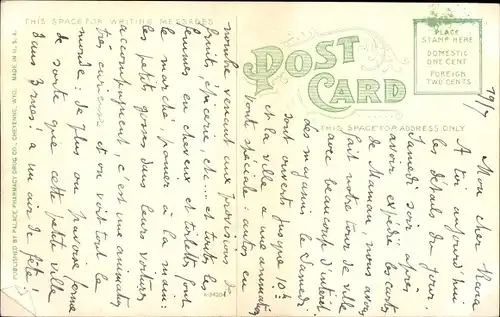 THIS SPACE FOR WRITING MESSAGES
POST CARD
PLACE
STAMP HERE
DOMESTIC
ONE CENT
FOREIGN
TWO CENTS
THIS SPACE FOR ADDRESS ONLY
19/7
Mon cher
A toi aujourd'hui
les détails du jour.
Samedi soir après
avoir expédié les cartes
de Maman nous avons
fait notre tour de ville
avec beaucoup d'intérêt.
des magasins le Samedi
sont ouverts jusque 10h
et la ville a une animation
toute spéciale: autos en
nombre venant aux provisions de
fruits, épicerie, etc... et toutes les
femmes en cheveux et toilette font
le marché, panier à la main:
les petits gosses dans leurs voitures
accompagnent, c'est une animation
très curieuse et on voit tout le
monde: de plus on pavoise ferme
de sorte que cette petite ville
dans 3 rues! a un air de fête!
A-34204
MADE IN U.S.A.